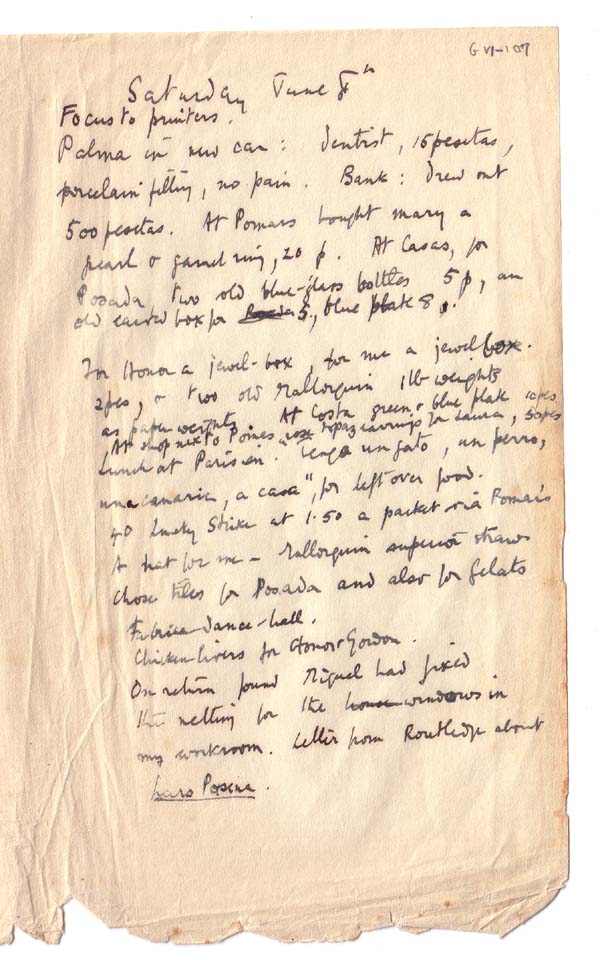 G VI-107
Saturday June 8th
Focus to printers.
Palma in new car: Dentist, 15 pesetas,
porcelain filling, no pain. Bank: Drew out
500 pesetas. At Pomars bought Mary a
pearl & garnet ring, 20 p. At Casas, for
Posada, two old blue-glass bottles 5 p, an
old carved box for 5, blue plate 8,
For Honor a jewel-box, for me a jewel box.
2 pes, & two old Mallorquin 1 lb weights
as paper weights. At Costa green & blue plate 10 pes.
At shop next to Pomes rose topaz earrings for Laura, 50 pes
Lunch at Parisien. "Tengo un gato, un perro,
una canaria, a casa", for left over food.
40 Lucky Strike at 1.50 a packet via Roma's
A hat for me - Mallorquin superior straws
Chose tiles for Posada and also for Gelats
Fabrica dance-hall.
Chicken livers for Honor & Gordon.
On return found Miguel had fixed
the netting for the house windows in
my workroom. Letter from Routledge about
Lars Porsena.